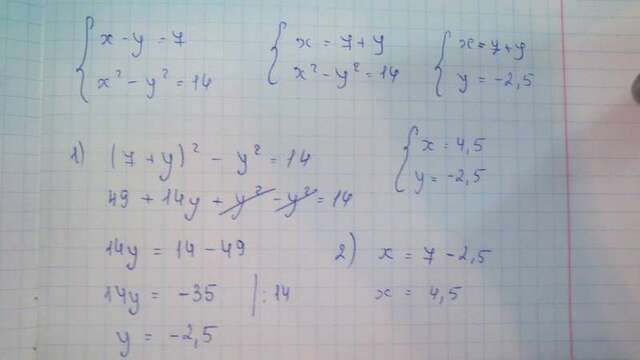 x - y = 7
x² - y² = 14
x = 7 + y
x² - y² = 14
x = 7 + y
y = -2,5
x = 4,5
y = -2,5
1) (7 + y)² - y² = 14
49 + 14y + y² - y² = 14
14y = 14 - 49
14y = -35 | : 14
y = -2,5
2) x = 7 - 2,5
x = 4,5